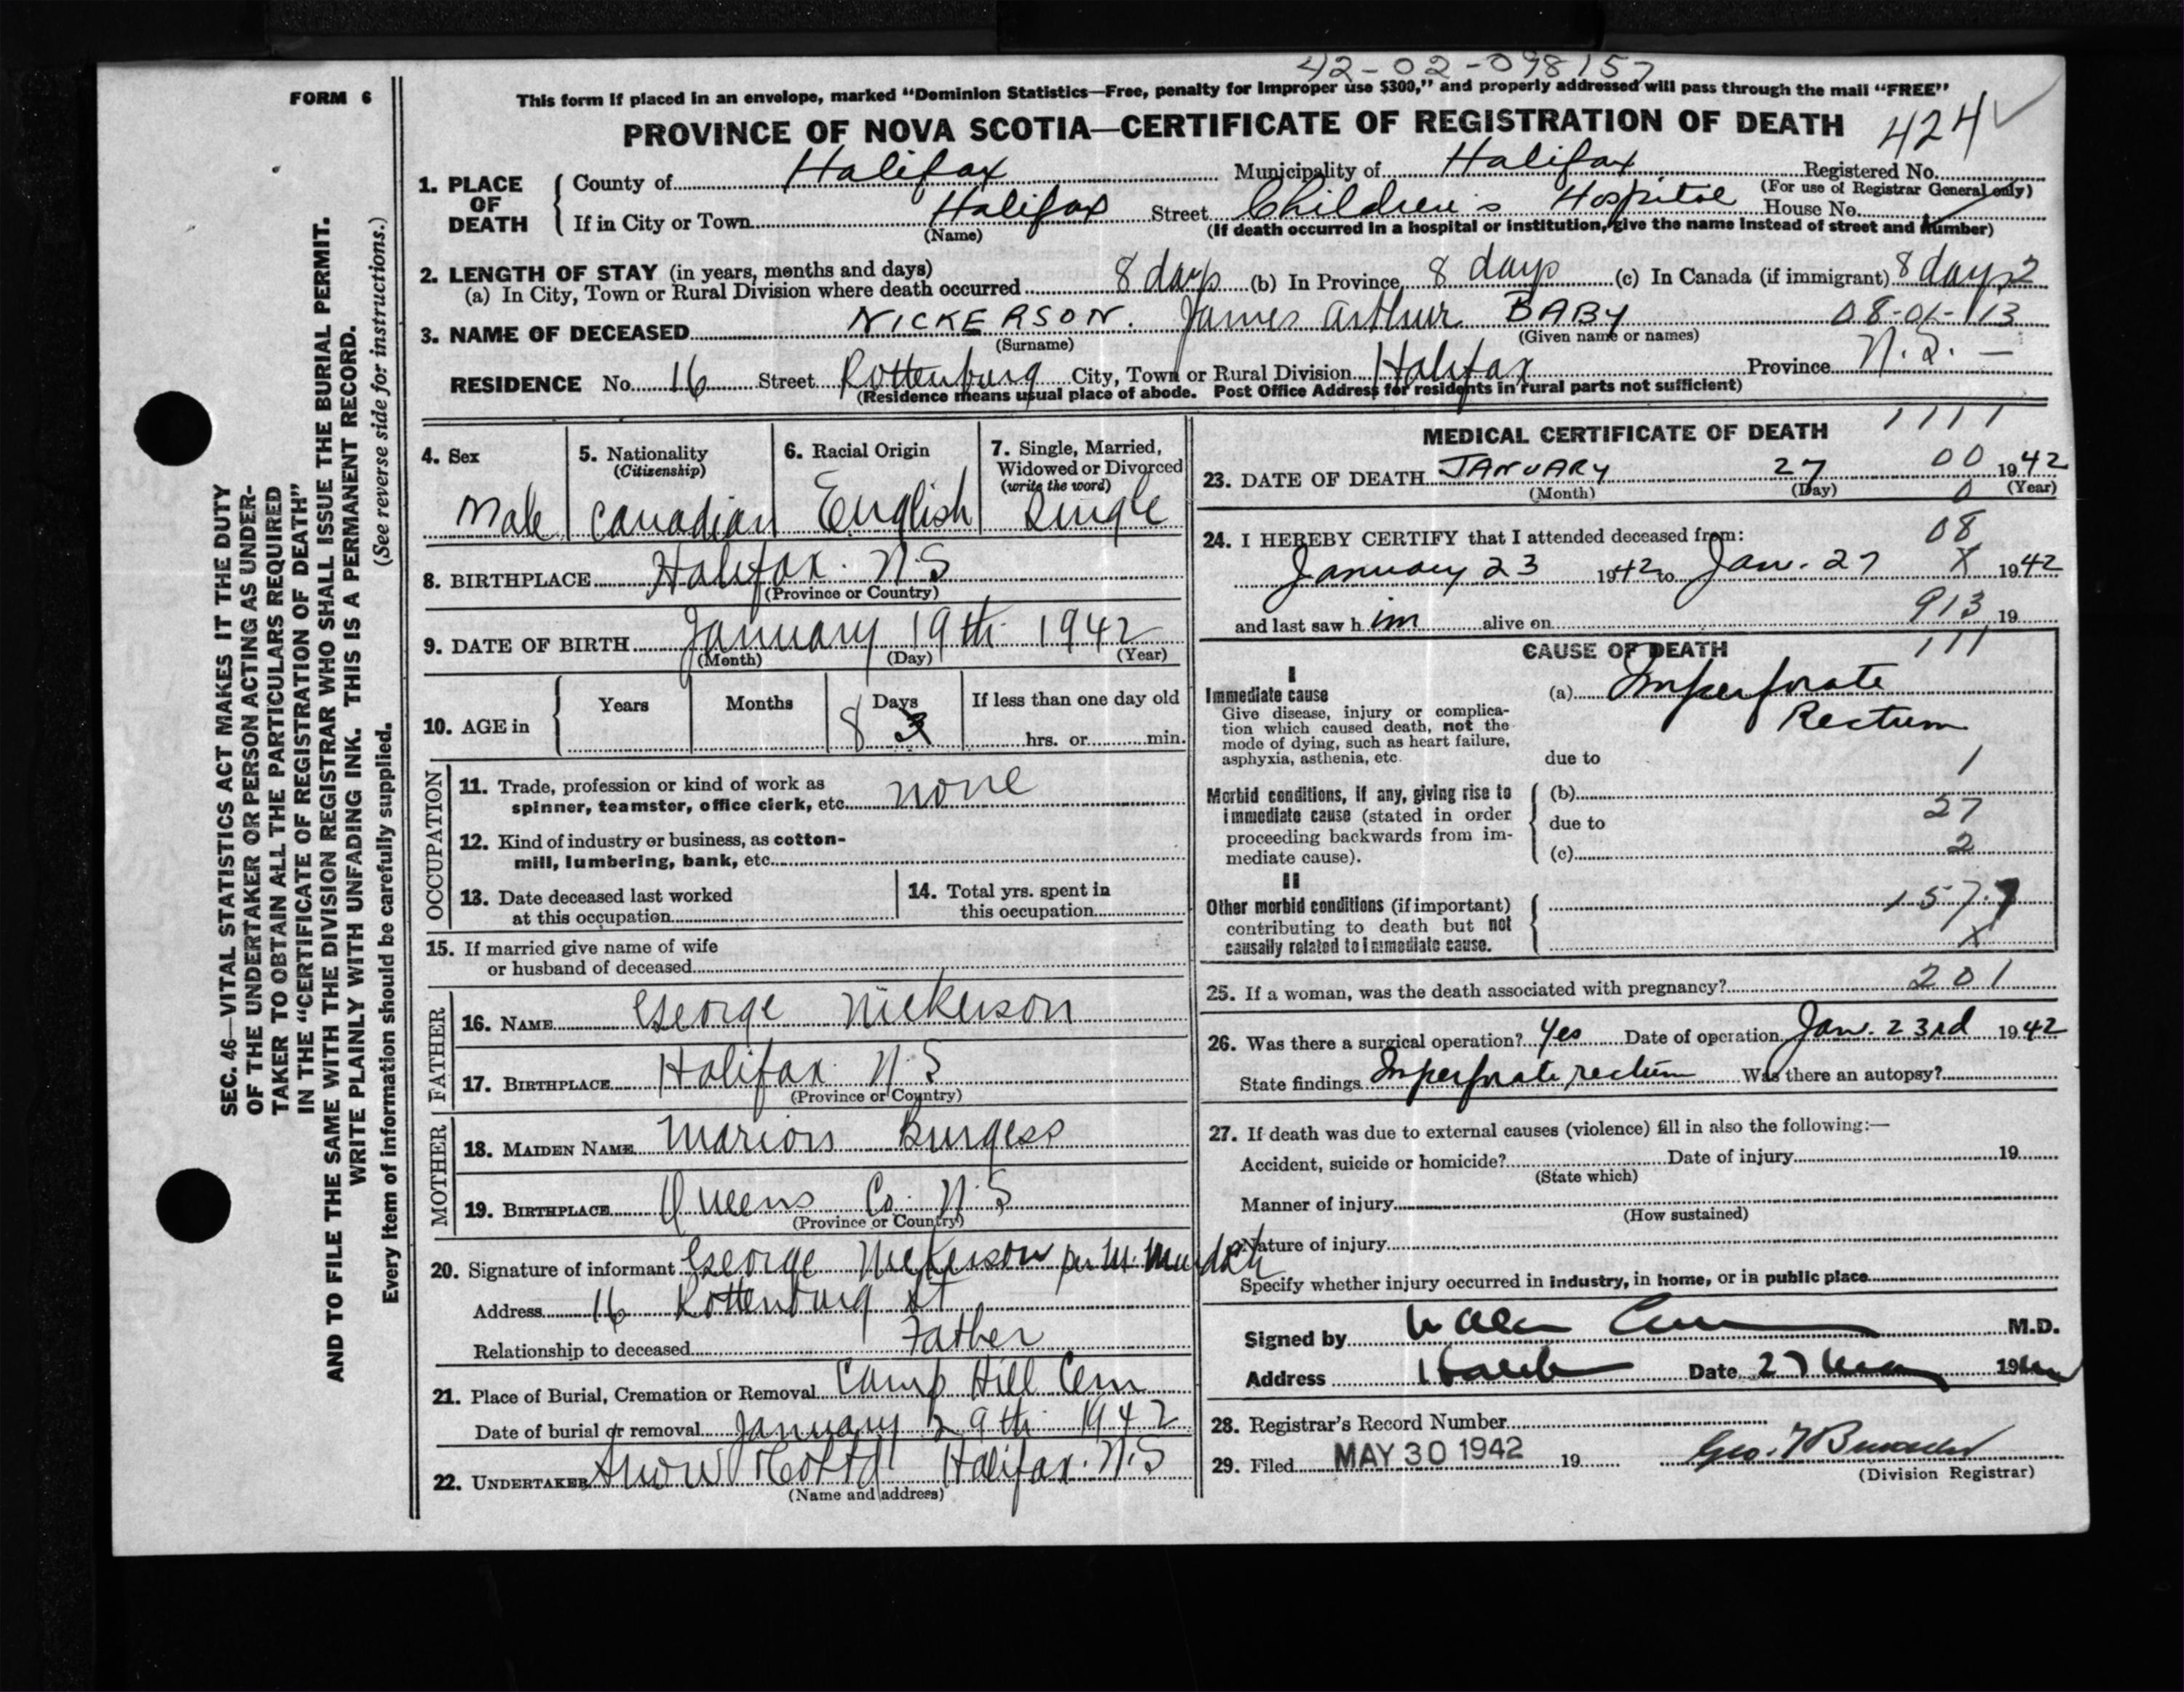 42-02-098157
FORM 6
This form if placed in an envelope, marked “Dominion Statistics—Free, penalty for improper use $300,” and properly addressed will pass through the mail “FREE”
PROVINCE OF NOVA SCOTIA—CERTIFICATE OF REGISTRATION OF DEATH 424
1. PLACE OF DEATH County of Halifax Municipality of Halifax Registered No.
(For use of Registrar General only)
If in City or Town Halifax Street Children's Hospital House No.
(Name) (If death occurred in a hospital or institution, give the name instead of street and number)
2. LENGTH OF STAY (in years, months and days)
(a) In City, Town or Rural Division where death occurred 8 days (b) In Province 8 days (c) In Canada (if immigrant) 8 days 2
3. NAME OF DECEASED NICKERSON. James Arthur BABY 08-01-113
(Surname) (Given name or names)
RESIDENCE No. 16 Street Rottenburg City, Town or Rural Division Halifax Province N.S. —
(Residence means usual place of abode. Post Office Address for residents in rural parts not sufficient)
4. Sex Male
5. Nationality (Citizenship) Canadian
6. Racial Origin English
7. Single, Married, Widowed or Divorced (write the word) Single
8. BIRTHPLACE Halifax. N.S
(Province or Country)
9. DATE OF BIRTH January 19th 1942
(Month) (Day) (Year)
10. AGE in Years Months Days If less than one day old
8 3 hrs. or min.
OCCUPATION
11. Trade, profession or kind of work as
spinner, teamster, office clerk, etc. none
12. Kind of industry or business, as cotton-
mill, lumbering, bank, etc.
13. Date deceased last worked
at this occupation
14. Total yrs. spent in
this occupation
15. If married give name of wife
or husband of deceased
FATHER
16. NAME George Nickerson
17. BIRTHPLACE Halifax N.S
(Province or Country)
MOTHER
18. MAIDEN NAME Marion Burgess
19. BIRTHPLACE Queens Co. N.S
(Province or Country)
20. Signature of informant George Nickerson per M.
Address 16 Rottenburg St
Relationship to deceased Father
21. Place of Burial, Cremation or Removal Camp Hill Cem
Date of burial or removal January 29th 1942
22. UNDERTAKER Snow Halifax. N.S
(Name and address)
MEDICAL CERTIFICATE OF DEATH 1111
23. DATE OF DEATH JANUARY 27 00 1942
(Month) (Day) 0 (Year)
24. I HEREBY CERTIFY that I attended deceased from: 08
January 23 1942 to Jan. 27 X 1942
and last saw h im alive on 913 19
CAUSE OF DEATH 111
I
Immediate cause
Give disease, injury or complica-
tion which caused death, not the
mode of dying, such as heart failure,
asphyxia, asthenia, etc.
(a) Imperforate
Rectum
due to 1
Morbid conditions, if any, giving rise to
immediate cause (stated in order
proceeding backwards from im-
mediate cause).
(b)
due to 27
(c) 2
II
Other morbid conditions (if important)
contributing to death but not
causally related to immediate cause.
157.
X
25. If a woman, was the death associated with pregnancy? 201
26. Was there a surgical operation? Yes Date of operation Jan. 23rd 1942
State findings Imperforate rectum Was there an autopsy?
27. If death was due to external causes (violence) fill in also the following:—
Accident, suicide or homicide? Date of injury 19
(State which)
Manner of injury
(How sustained)
Nature of injury
Specify whether injury occurred in industry, in home, or in public place
Signed by M.D.
Address Date 27 19
28. Registrar's Record Number
29. Filed MAY 30 1942 19 Geo.
(Division Registrar)
SEC. 46—VITAL STATISTICS ACT MAKES IT THE DUTY
OF THE UNDERTAKER OR PERSON ACTING AS UNDER-
TAKER TO OBTAIN ALL THE PARTICULARS REQUIRED
IN THE “CERTIFICATE OF REGISTRATION OF DEATH”
AND TO FILE THE SAME WITH THE DIVISION REGISTRAR WHO SHALL ISSUE THE BURIAL PERMIT.
WRITE PLAINLY WITH UNFADING INK. THIS IS A PERMANENT RECORD.
Every item of information should be carefully supplied. (See reverse side for instructions.)